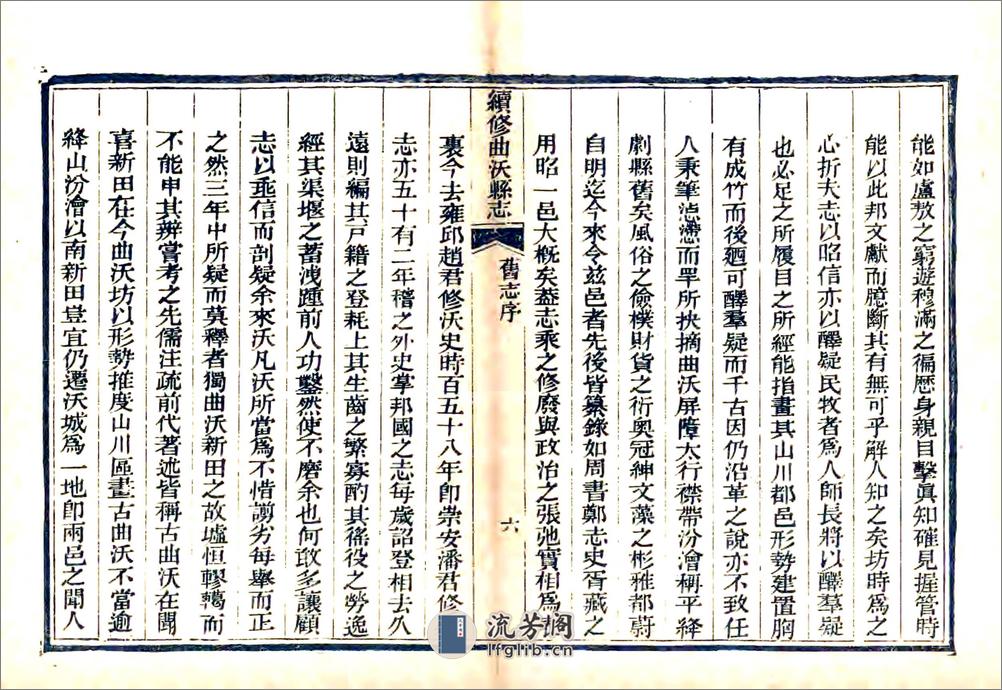 能如盧敖之窮遊穆滿之徧歷身親目擊眞知確見握管時
能以此邦文獻而臆斷其有無可乎解人知之矣坊時爲之
心折夫志以昭信亦以釋疑民牧者爲人師長將以釋羣疑
也必足之所履目之所經能指畫其山川都邑形勢建置胸
有成竹而後廼可釋羣疑而千古因仍沿革之說亦不致任
人秉筆滺而單所挾摘曲沃屏障太行襟帶汾澮稱平絳
劇縣舊矣風俗之儉樸財貨之衍奧冠紳文藻之彬雅都蔚
自明迄今來令兹邑者先後皆纂錄如周書鄭志史胥藏之
用昭一邑大槪矣葢志乘之修廢與政治之張弛實相爲
續修曲沃縣志
舊志序
六
裏今去雍邱趙君修沃史時百五十八年卽崇安潘君修
志亦五十有二年稽之外史掌邦國之志每歲詔登相去久
遠則編其戸籍之登耗上其生齒之繁寡酌其徭役之勞逸
經其渠堰之蓄洩踵前人功鑿然使不磨余也何敢多讓顧
志以埀信而剖疑余來沃凡沃所當爲不惜謭劣每舉而正
之然三年中所疑而莫釋者獨曲沃新田之故墟恒轇轕而
不能申其辨嘗考之先儒注疏前代著述皆稱古曲沃在聞
喜新田在今曲沃坊以形勢推度山川區畫古曲沃不當逾
絳山汾澮以南新田豈宜仍遷沃城爲一地卽兩邑之聞人
流芳閣
lfglib.cn